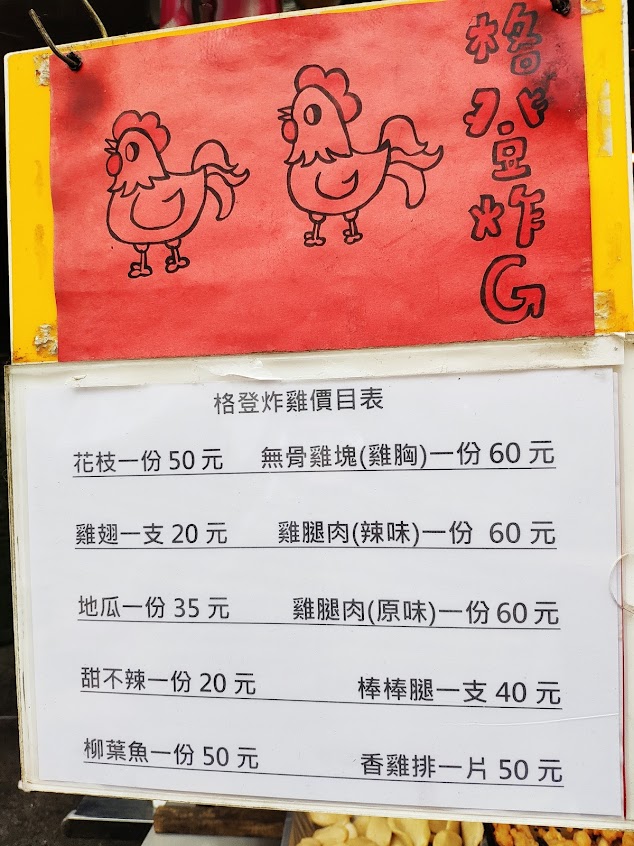 格登炸G
格登炸雞價目表
花枝一份50元 無骨雞塊(雞胸)一份60元
雞翅一支20元 雞腿肉(辣味)一份 60元
地瓜一份35元 雞腿肉(原味)一份60元
甜不辣一份20元 棒棒腿一支40元
柳葉魚一份50元 香雞排一片50元